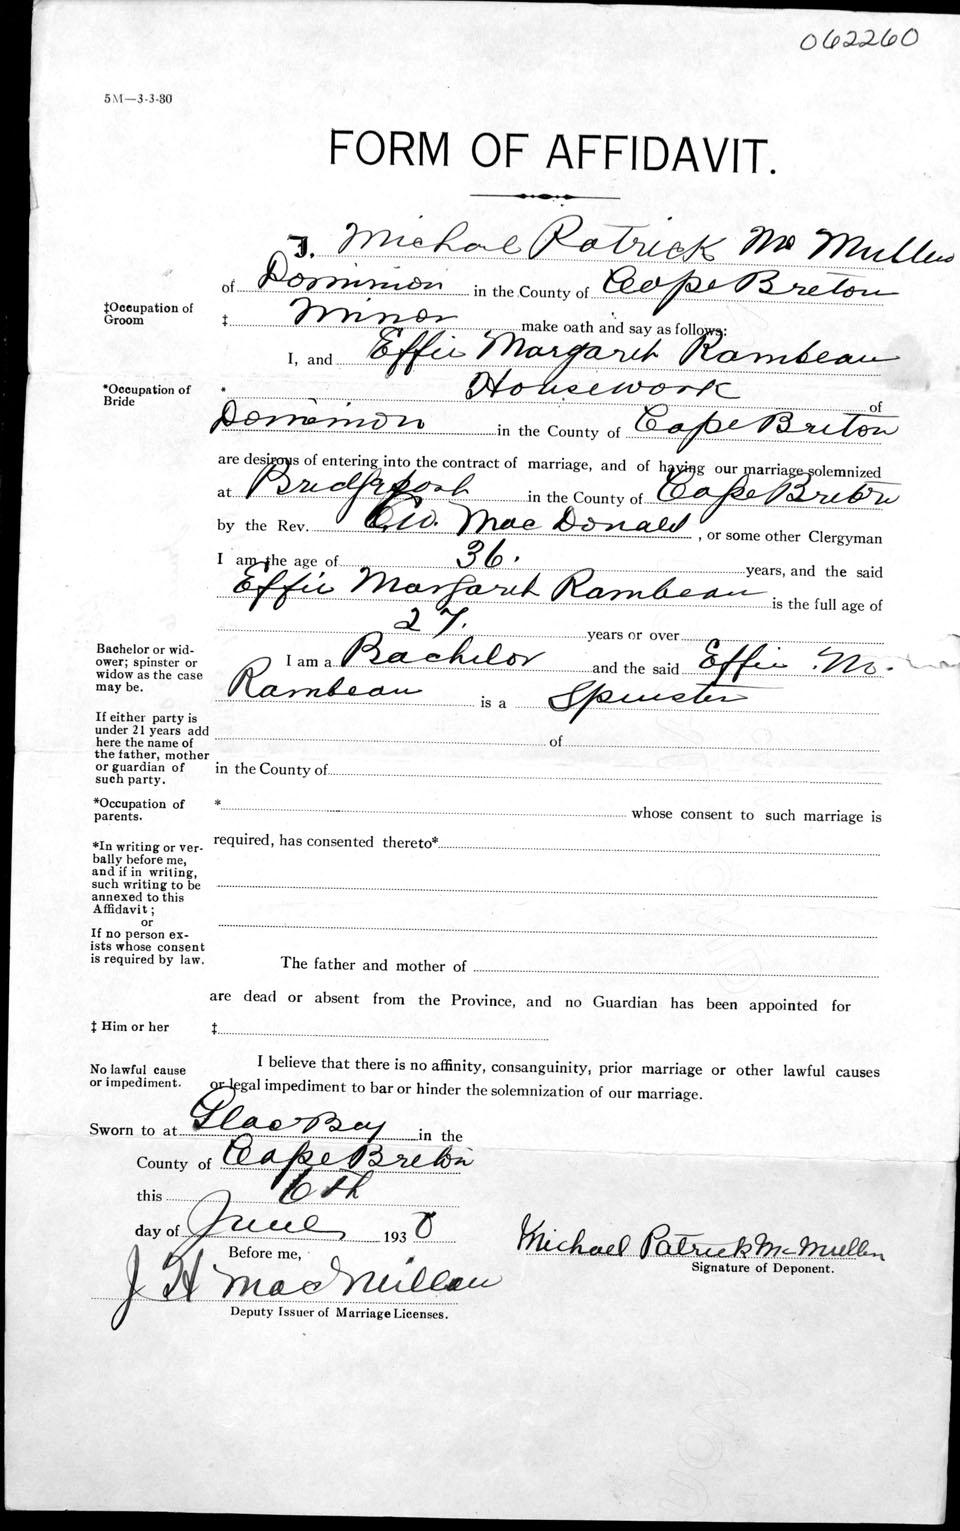 062260
5M—3-3-30
FORM OF AFFIDAVIT.
I, Michael Patrick Mc Mullen
of Dominion in the County of Cape Breton
‡Occupation of Groom ‡ Minor make oath and say as follows:
I, and Effie Margaret Rambeau
*Occupation of Bride * Housework of
Dominion in the County of Cape Breton
are desirous of entering into the contract of marriage, and of having our marriage solemnized
at Bridgeport in the County of Cape Breton
by the Rev. MacDonald, or some other Clergyman
I am the age of 36. years, and the said
Effie Margaret Rambeau is the full age of
27. years or over
Bachelor or widower; spinster or widow as the case may be.
I am a Bachelor and the said Effie M.
Rambeau is a Spinster
If either party is
under 21 years add
here the name of
the father, mother
or guardian of
such party.
of
in the County of
*Occupation of parents.
* whose consent to such marriage is
required, has consented thereto*
*In writing or ver-
bally before me,
and if in writing,
such writing to be
annexed to this
Affidavit;
or
If no person ex-
ists whose consent
is required by law.
The father and mother of
are dead or absent from the Province, and no Guardian has been appointed for
‡ Him or her ‡
No lawful cause
or impediment.
I believe that there is no affinity, consanguinity, prior marriage or other lawful causes
or legal impediment to bar or hinder the solemnization of our marriage.
Sworn to at Glace Bay in the
County of Cape Breton
this 6th
day of June 1930
Before me,
J H MacMillan
Deputy Issuer of Marriage Licenses.
Michael Patrick McMullen
Signature of Deponent.